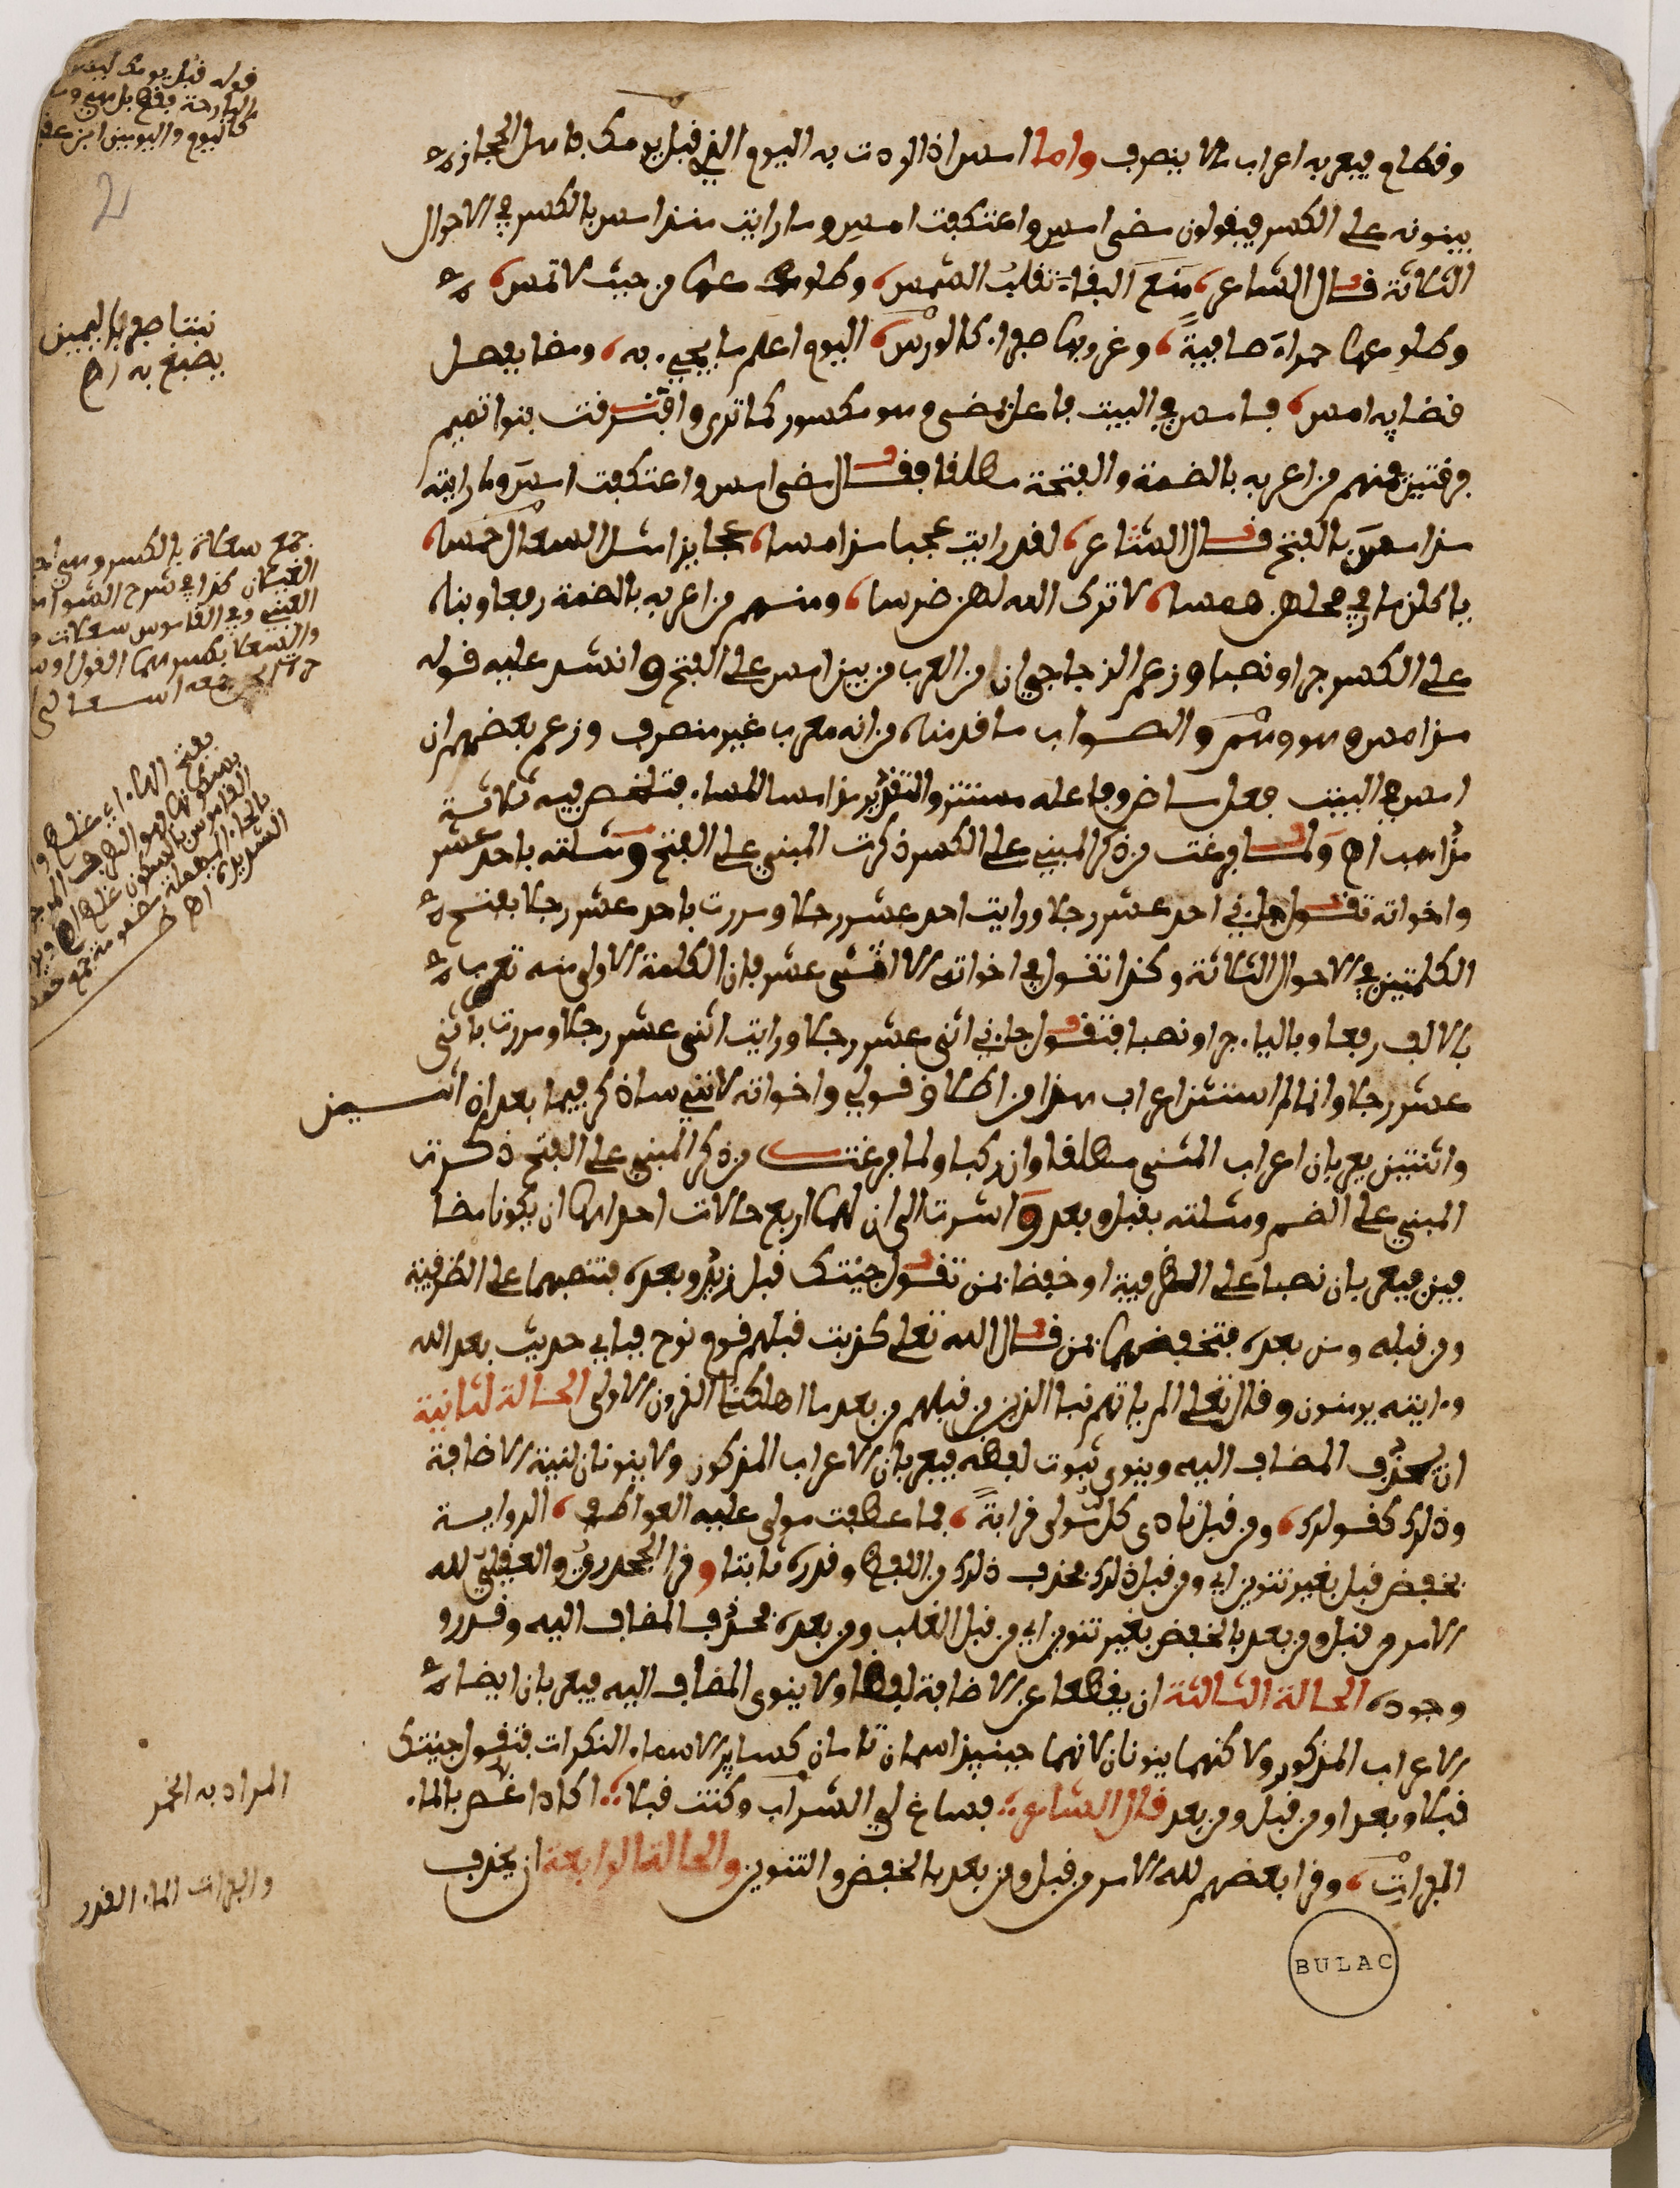 وقطام فيعربه اعراب ما لا ينصرف واما امس اذا اردت به اليوم الذي قبل يومك فاهل الحجاز
يبنونه على الكسر فيقولون مضى امس واعتكفت امس وما رايت مذ امس بالكسر في الاحوال
الثلاثة قال الشاعر منع البقاء تقلب الشمس وطلوعها من حيث لا تمس
وطلوعها حمراء صافية وغروبها صفراء كالورس اليوم اعلم ما يجيء به ومضا بفصل
قضايه امس فامس في البيت فاعل بمضى وهو مكسور كما ترى وافترقت بنوا تميم
فرقتين فمنهم من اعربه بالضمة والفتحة مطلقا فقال مضى امس واعتكفت امس وما رايته
مذ امس بالفتح قال الشاعر لقد رايت عجبا مذ امسا عجايزا مثل السعالي خمسا
ياكلن ما في رحلهن همسا لا ترك الله لهن ضرسا ومنهم من اعربه بالضمة رفعا وبناه
على الكسر جرا ونصبا وزعم الزجاجي ان من العرب من يبني امس على الفتح وانشد عليه قوله
مذ امس وهو وهم والصواب ما قدمناه من انه معرب غير منصرف وزعم بعضهم ان
امس في البيت فعل ماض وفاعله مستتر والتقدير مذ امسا المساء فتلخص فيه ثلاثة
مذاهب اه ولما فرغت من ذكر المبني على الكسر ذكرت المبني على الفتح ومثلته باحد عشر
واخواته تقول جاءني احد عشر رجلا ورايت احد عشر رجلا ومررت باحد عشر رجلا بفتح
الكلمتين في الاحوال الثلاثة وكذا تقول في اخواته الا اثنى عشر فان الكلمة الاولى منه تعرب
بالالف رفعا وبالياء جرا ونصبا فتقول جاءني اثنى عشر رجلا ورايت اثنى عشر رجلا ومررت باثنى
عشر رجلا وانما لم استثن اعراب هذا من اطلاق قولي واخواته لانني ساذكر فيما بعد ان اثنين
واثنتين يعربان اعراب المثنى مطلقا وان ركبا ولما فرغت من ذكر المبني على الفتح ذكرت
المبني على الضم ومثلته بقبل وبعد واشرت الى ان لهما اربع حالات احداها ان يكونا مضا
فين فيعربان نصبا على الظرفية او خفضا بمن تقول جئتك قبل زيد وبعده فتنصبهما على الظرفية
ومن قبله ومن بعده فتخفضهما بمن قال الله تعلى كذبت قبلهم قوم نوح فباي حديث بعد الله
وءايته يومنون وقال تعلى الم ياتهم نبا الذين من قبلهم من بعد ما اهلكنا القرون الاولى الحالة الثانية
ان يحذف المضاف اليه وينوى ثبوت لفظه فيعربان الاعراب المذكور ولا ينونان لنية الاضافة
وذلك كقولك ومن قبل نادى كل مولى قرابة فما عطفت مولى عليه العواطف الرواية
بخفض قبل بغير تنوين اي ومن قبل ذلك فحذف ذلك من اللفظ وقدره ثابتا وقرا الجحدري والعقيلي لله
الامر من قبل ومن بعد بالخفض بغير تنوين اي من قبل الغلب ومن بعده فحذف المضاف اليه وقدرو
وجوده الحالة الثالثة ان يقطعا عن الاضافة لفظا ولا ينوى المضاف اليه فيعربان ايضا
الاعراب المذكور ولاكنهما ينونان لانهما حينيذ اسمان تامان كساير الاسماء النكرات فتقول جئتك
قبلا وبعدا ومن قبل ومن بعد قال الشاعر فساغ لي الشراب وكنت قبلا اكاد اغص بالماء
الفرات وقرا بعضهم لله الامر من قبل ومن بعد بالخفض والتنوين والحالة الرابعة ان يحذف
قوله قبل يومك
نبتا صفرا باليمين
يصبغ به اه
جمع سعلاة بالكسر وهي
الغيلان كذا في شرح الشواهد
المراد به الخمر
والفرات الماء
BULAC